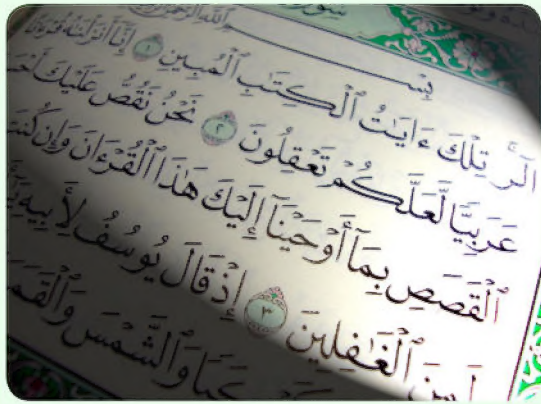 سورة
بِسْــــمِ ٱللَّهِ ٱلرَّحْمَٰنِ
الٓر تِلْكَ ءَايَٰتُ ٱلْكِتَٰبِ ٱلْمُبِينِ ١ إِنَّآ أَنزَلْنَٰهُ قُرْءَٰنًا
عَرَبِيًّا لَّعَلَّكُمْ تَعْقِلُونَ ٢ نَحْنُ نَقُصُّ عَلَيْكَ
ٱلْقَصَصِ بِمَآ أَوْحَيْنَآ إِلَيْكَ هَٰذَا ٱلْقُرْءَانَ وَإِن كُنتَ
ٱلْغَٰفِلِينَ ٣ إِذْ قَالَ يُوسُفُ لِأَبِيهِ
وَٱلشَّمْسَ